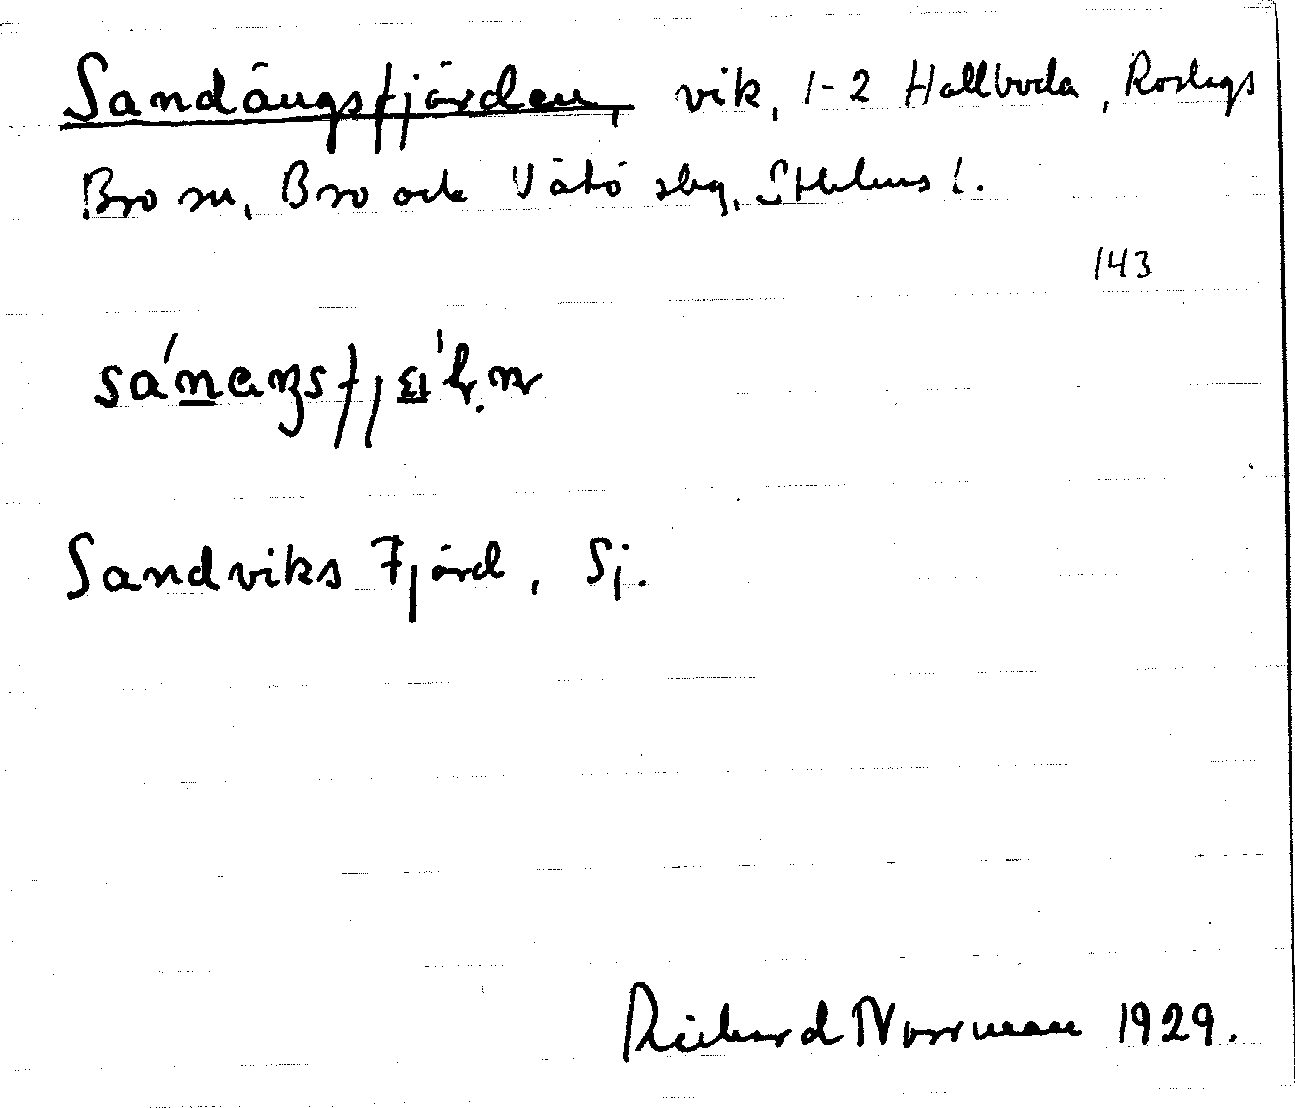 Sandängsfjärden, vik, 1-2 Hallboda, Roslags
Bro sn, Bro och Vätö skg, Sthlms l.
143
Sandviks Fjärd, Sj.
Richard Norrman 1929.